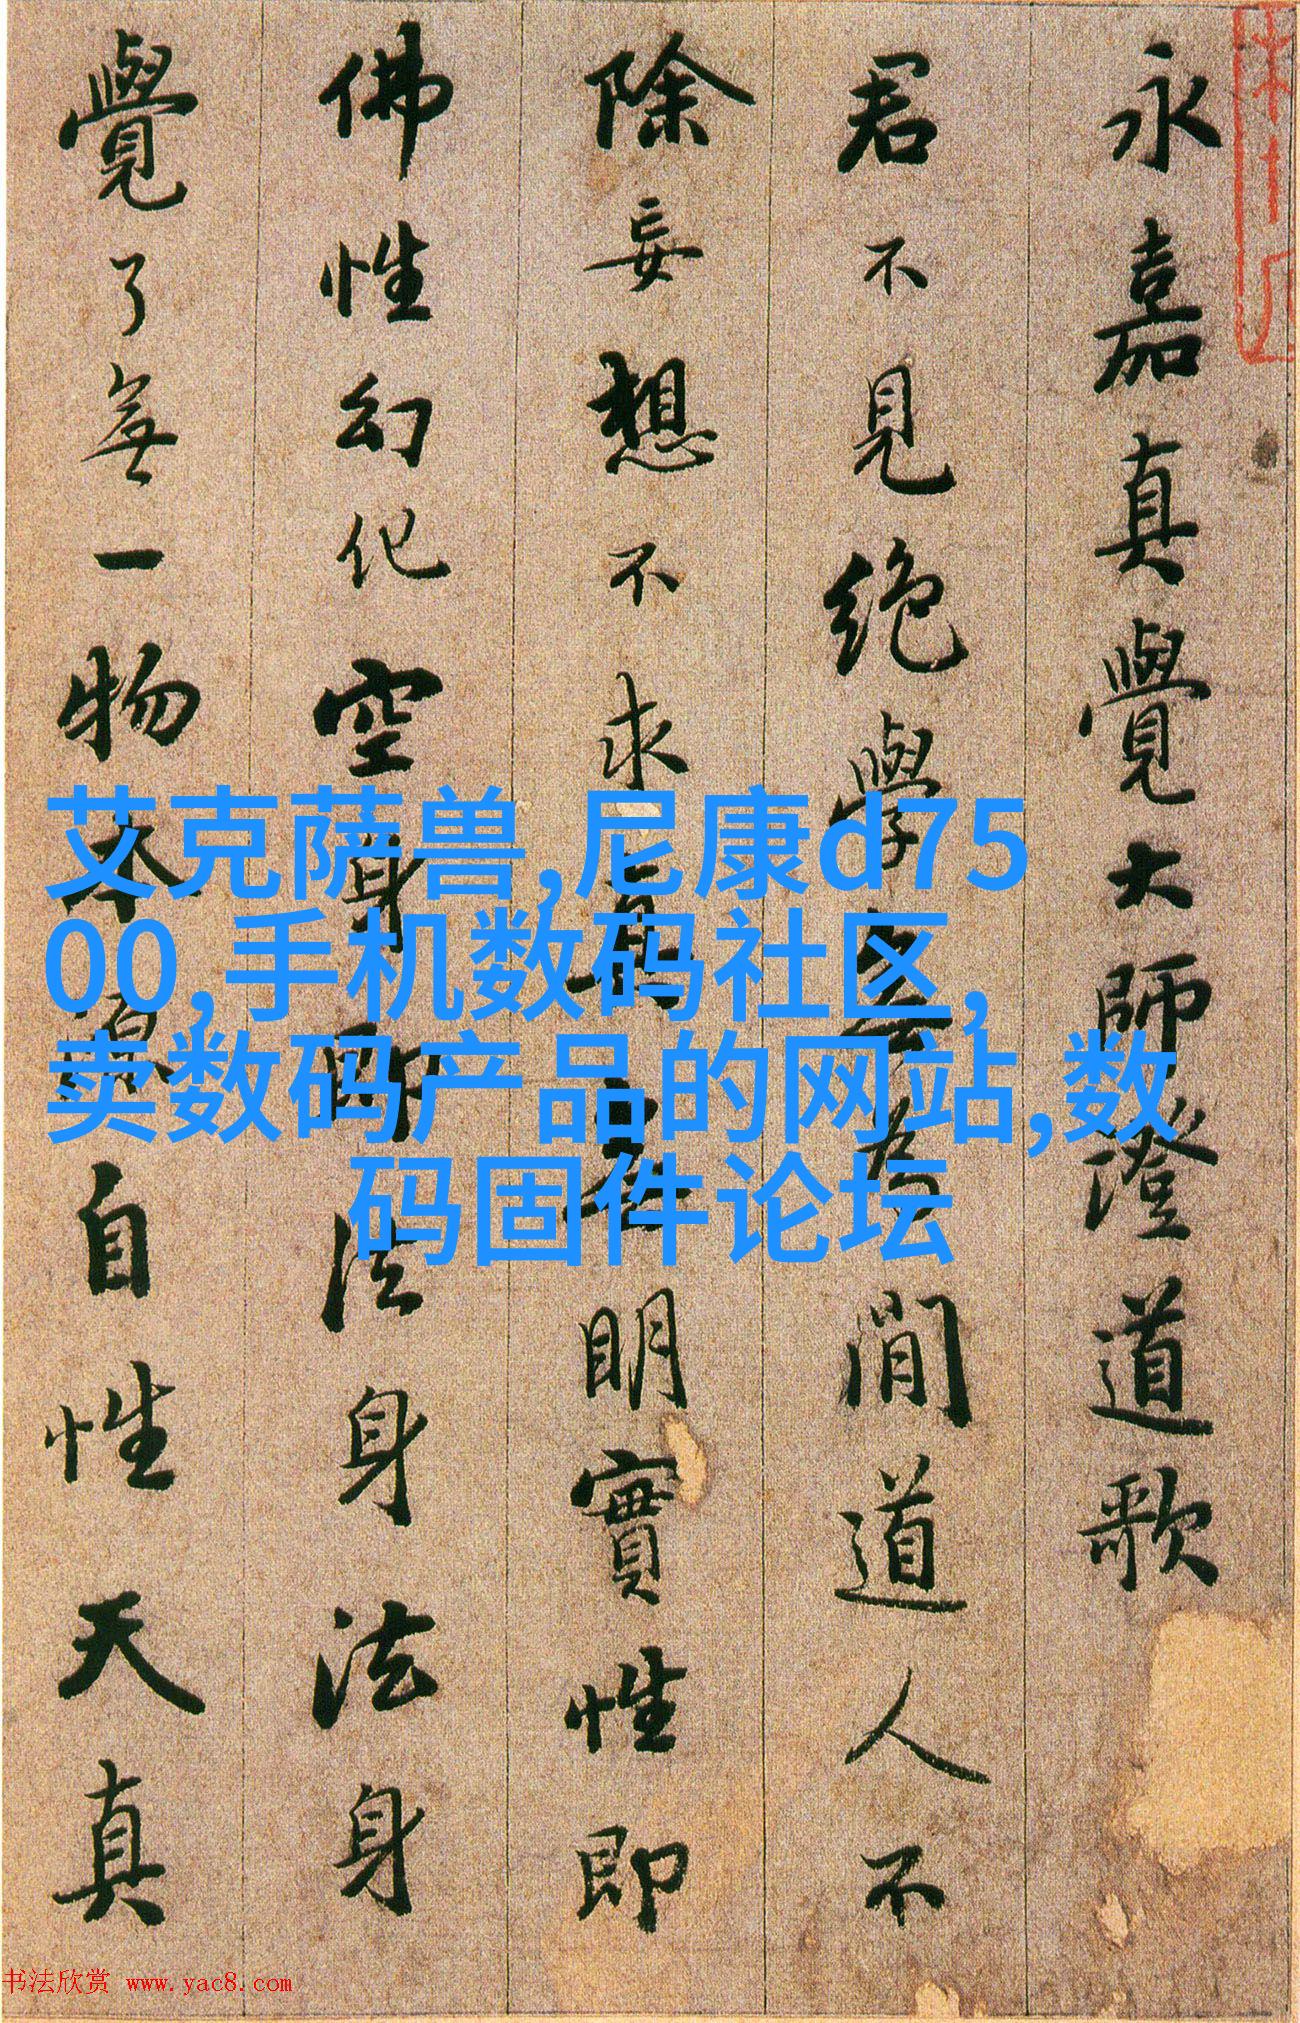 永嘉真覺大師澄道歌
君不見絕學無為閒道人不
除妄想不求真無明實性即
佛性幻化空身即法身法身
覺了無一物本源自性天真
艾克萨兽,尼康d75
00,手机数码社区,
卖数码产品的网站,数
码固件论坛
书法欣赏 www.yac8.com